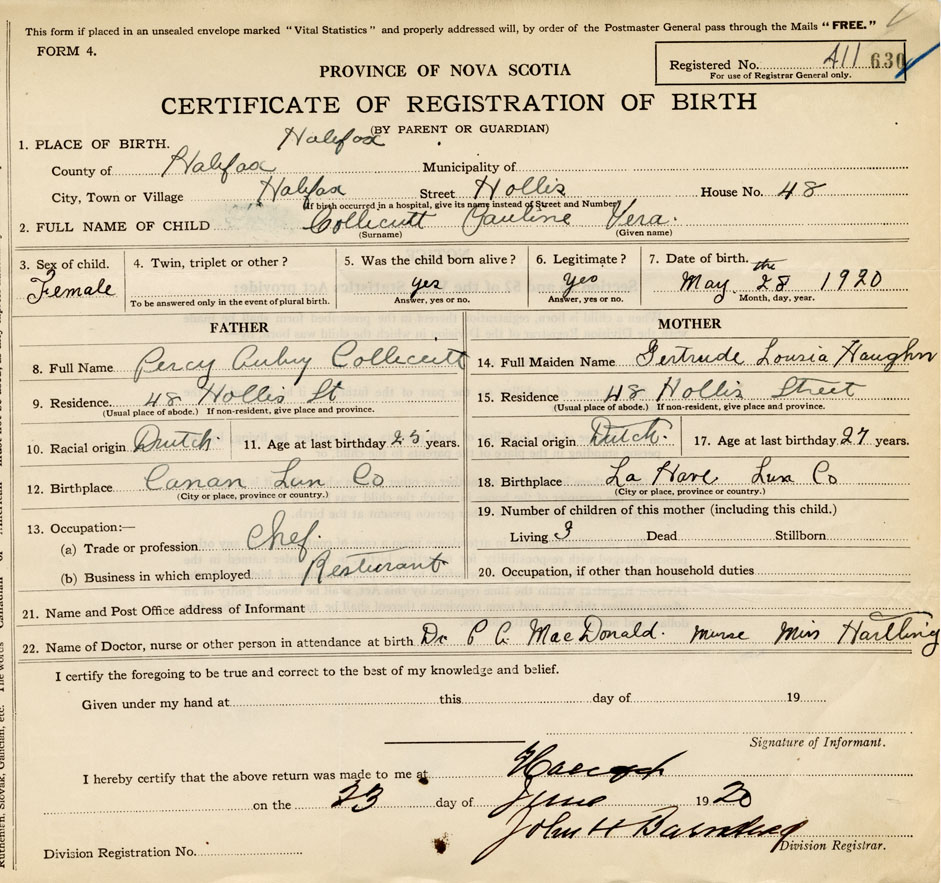 This form if placed in an unsealed envelope marked "Vital Statistics" and properly addressed will, by order of the Postmaster General pass through the Mails "FREE."
FORM 4.
Registered No. A11 630
For use of Registrar General only.
PROVINCE OF NOVA SCOTIA
CERTIFICATE OF REGISTRATION OF BIRTH
(BY PARENT OR GUARDIAN)
1. PLACE OF BIRTH. Halifax
County of Halifax Municipality of
City, Town or Village Halifax Street Hollis House No. 48
If birth occurred in a hospital, give its name instead of Street and Number
2. FULL NAME OF CHILD Collicutt Pauline Vera.
(Surname) (Given name)
3. Sex of child. 4. Twin, triplet or other? 5. Was the child born alive? 6. Legitimate? 7. Date of birth.
Female yes Yes May the 28 1920
To be answered only in the event of plural birth. Answer, yes or no. Answer, yes or no. Month, day, year.
FATHER MOTHER
8. Full Name Percy Aubry Collicutt 14. Full Maiden Name Gertrude Lousia Haughn
9. Residence. 48 Hollis St 15. Residence 48 Hollis Street
(Usual place of abode.) If non-resident, give place and province. (Usual place of abode.) If non-resident, give place and province.
10. Racial origin Dutch. 11. Age at last birthday 25 years. 16. Racial origin Dutch. 17. Age at last birthday 27 years.
12. Birthplace Canan Lun Co 18. Birthplace La Have Lun Co
(City or place, province or country.) (City or place, province or country.)
13. Occupation:— 19. Number of children of this mother (including this child.)
(a) Trade or profession Chef. Living 3 Dead Stillborn
(b) Business in which employed Resturant 20. Occupation, if other than household duties
21. Name and Post Office address of Informant
22. Name of Doctor, nurse or other person in attendance at birth Dr. P C. MacDonald. nurse Miss Hartling
I certify the foregoing to be true and correct to the best of my knowledge and belief.
Given under my hand at this day of 19
Signature of Informant.
I hereby certify that the above return was made to me at
on the 23 day of June 1920
John H
Division Registration No. Division Registrar.